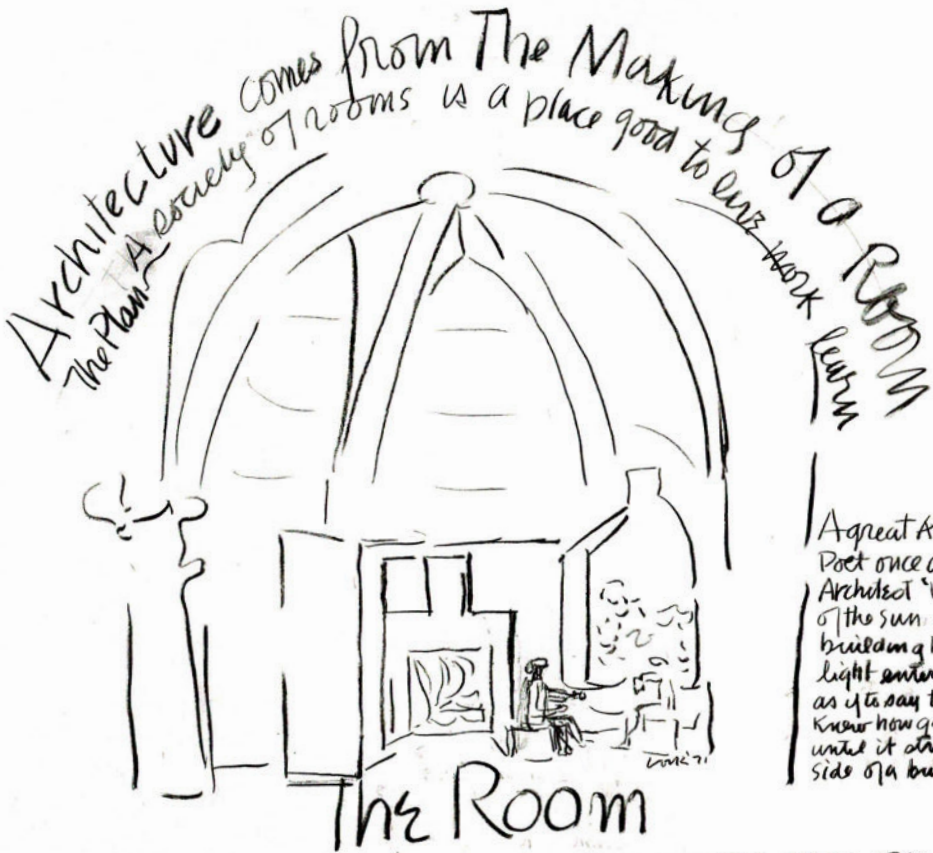 Architecture comes from The Making of a Room
The Plan – A society of rooms is a place good to live work learn
A great A
Poet once a
Architect
of the sun
building
light enter
as if to say t
knew how g
until it str
side of a bu
The Room